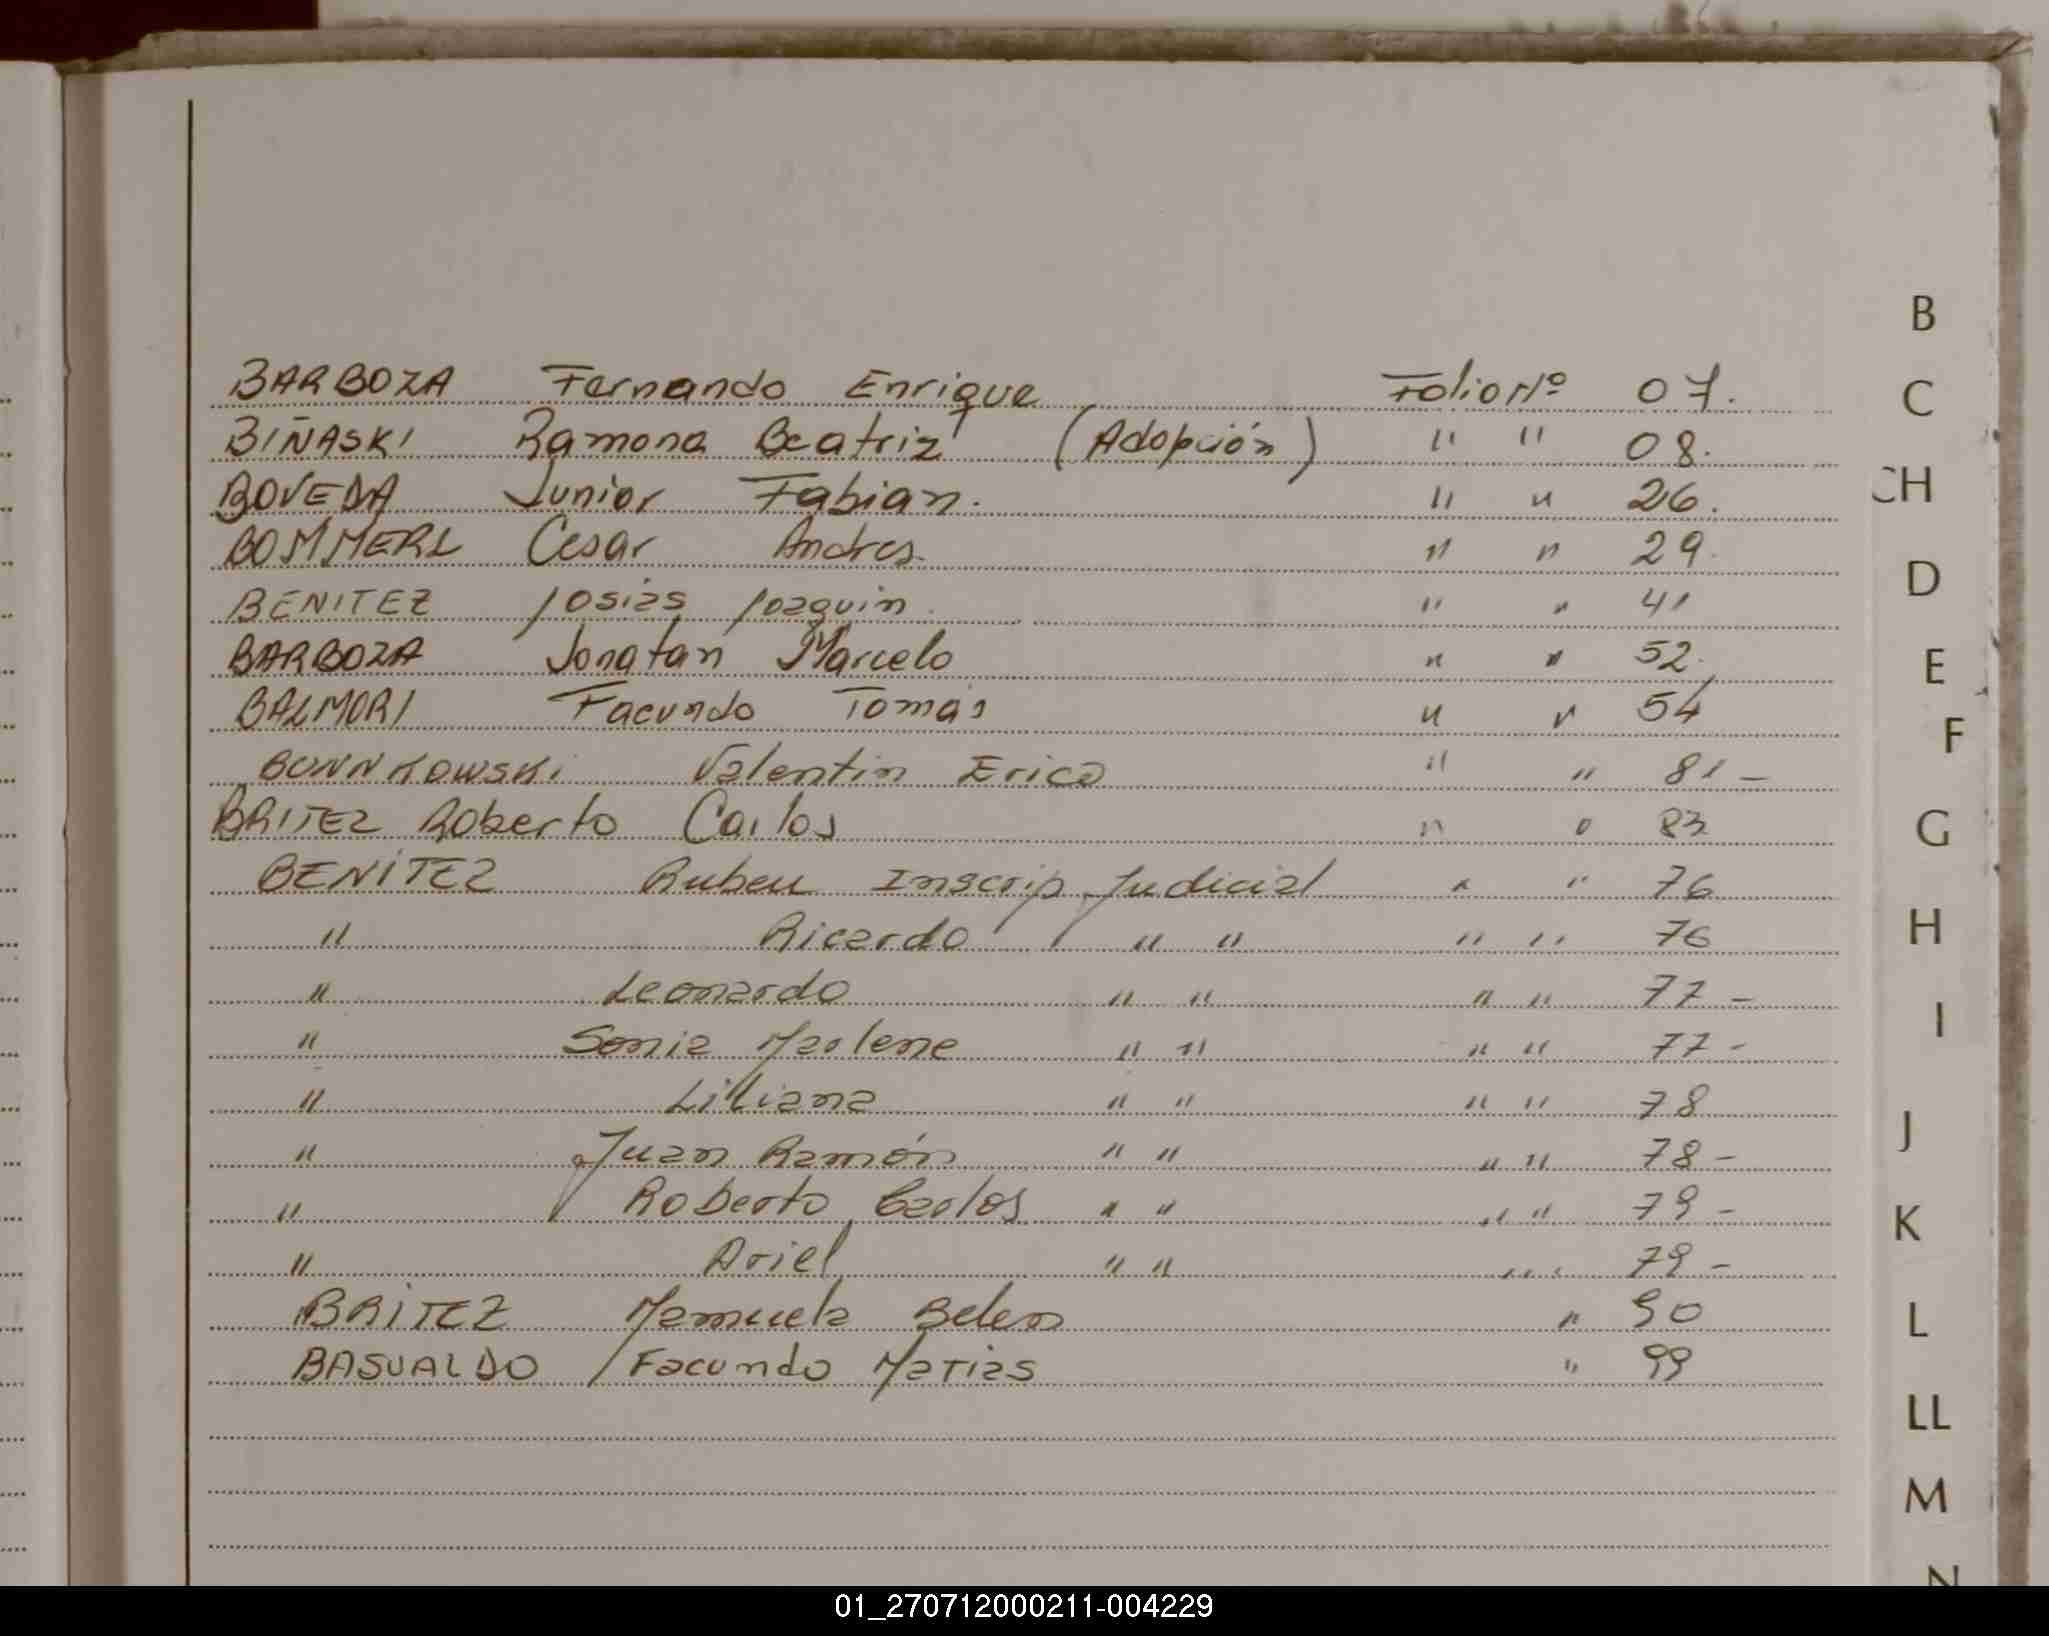 BARBOZA Fernando Enrique Folio Nº 07.
BIÑASKI Ramona Beatriz (Adopción) " " 08.
BOVEDA Junior Fabian. " " 26.
BOMMERL Cesar Andres. " " 29.
BENITEZ Josias Joaquin. " " 41
BARBOZA Jonatan Marcelo " " 52.
BALMORI Facundo Tomás " " 54
BONNKOWSKi Valentin Erico " " 81 -
BRITEZ Roberto Carlos " " 83
BENITEZ Ruben Inscrip Judicial " " 76
" Ricardo " " " " 76
" Leonardo " " " " 77 -
" Sonia Marlene " " " " 77 -
" Liliana " " " " 78
" Juan Ramón " " " " 78 -
" Roberto Carlos " " " " 79 -
" Ariel " " " " 79 -
BRITEZ Manuela Belen " 90
BASUALDO Facundo Matias " 99
B
C
CH
D
E
F
G
H
I
J
K
L
LL
M
N
01_270712000211-004229